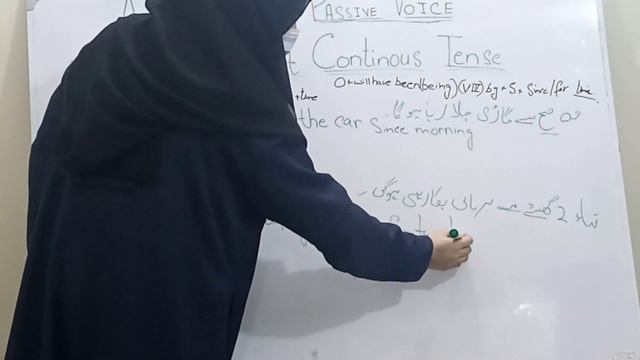 PASSIVE VOICE
Continous Tense
O+will have been(being)(VIII)by+S+Since/for time.
+time
وہ صبح سے گاڑی چلا رہا ہو گا۔
the car since morning
ثناء 2 گھنٹے سے بریانی پکا رہی ہوگی۔